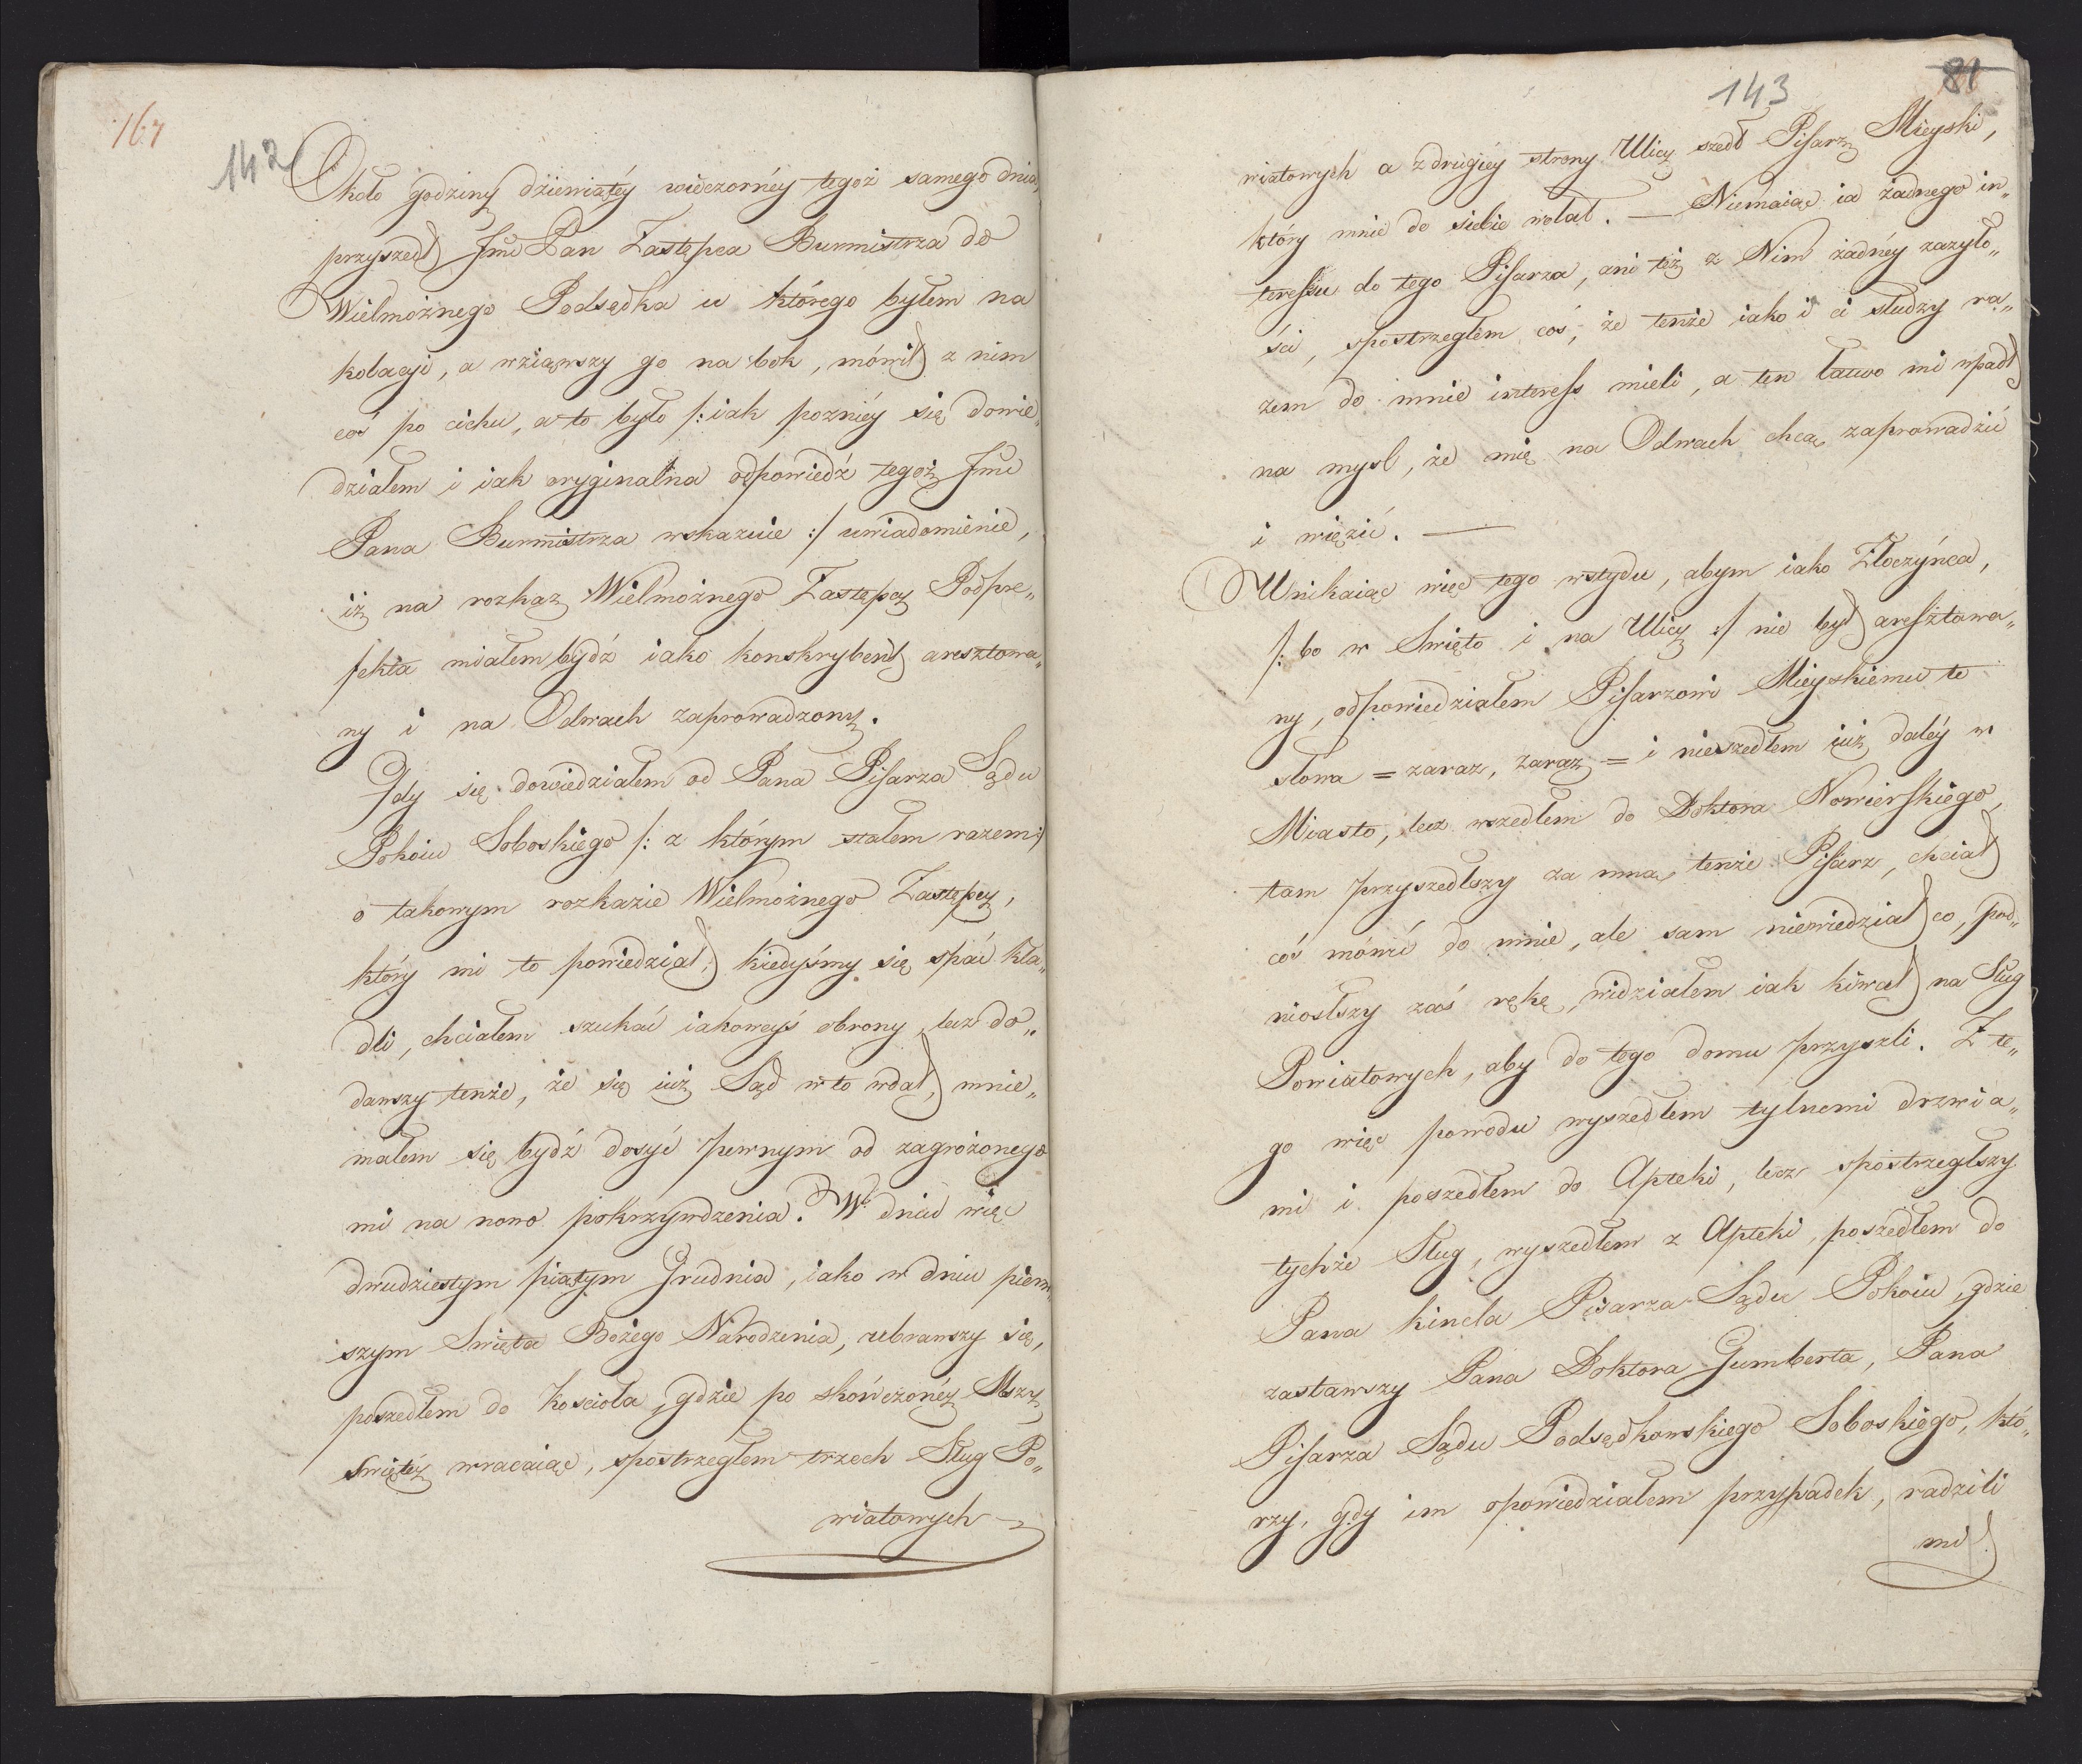 167
142
Około godziny dziewiątéy wieczornéy tegoż samego dnia,
przyszedł Jmć Pan Zastępca Burmistrza do
Wielmożnego Podsędka u którego byłem na
kolacyi, a wziąwszy go na bok, mówił z nim
coś po cichu, a to było /: iak pozniéy się dowie„
działem i iak oryginalna odpowiedź tegoż Jmć
Pana Burmistrza wskazuie :/ uwiadomienie,
iż na rozkaz Wielmożnego Zastępcy Podpre„
fekta miałem bydź iako konskrybent aresztowa„
ny i na Odwach zaprowadzony.
Gdy się dowiedziałem od Pana Pisarza Sądu
Pokoiu Soboskiego /: z którym stałem razem :/
o takowym rozkazie Wielmożnego Zastępcy,
który mi to powiedział, kiedyśmy się spać kła„
dli, chciałem szukać iakoweyś obrony, lecz do„
dawszy tenże, że się iuż Sąd w to wdał, mnie„
małem się bydź dosyć pewnym od zagrożonego
mi na nowo pokrzywdzenia. W dniu więc
dwudziestym piątym Grudnia, iako w dniu pierw„
szym Swięta Bożego Narodzenia, ubrawszy się,
poszedłem do Kościoła, gdzie po skończonéy Mszy
Swiętéy wracaiąc, spostrzegłem trzech Sług Po„
wiatowych
143
81
wiatowych a z drugiéy strony Ulicy szedł Pisarz Mieyski,
który mnie do siebie wołał. — Niemaiąc ia żadnego in„
teressu do tego Pisarza, ani też z Nim żadnéy zazyło„
ści, spostrzegłem coś, że tenże iako i ci słudzy ra„
zem do mnie interess mieli, a ten łatwo mi wpadł
na mysl, że mię na Odwach chcą zaprowadzić
i więzić. —
Unikaiąc więc tego wstydu, abym iako Złoczyńca,
/: bo w Swięto i na Ulicy :/ nie był aresztowa„
ny, odpowiedziałem Pisarzowi Mieyskiemu te
słowa = zaraz, zaraz = i nieszedłem iuż daléy w
Miasto, lecz wszedłem do Doktora Nowierskiego,
tam przyszedłszy za mną tenże Pisarz, chciał
coś mówić do mnie, ale sam niewiedział co, pod„
niosłszy zaś rękę, widziałem iak kiwał na Sług
Powiatowych, aby do tego domu przyszli. Z te„
go więc powodu wyszedłem tylnemi drzwia„
mi i poszedłem do Apteki, lecz spostrzegłszy
tychże Sług, wyszedłem z Apteki, poszedłem do
Pana Kincla Pisarza Sądu Pokoiu, gdzie
zastawszy Pana Doktora Gumberta, Pana
Pisarza Sądu Podsędkowskiego Soboskiego, któ„
rzy, gdy im opowiedziałem przypadek, radzili
mi